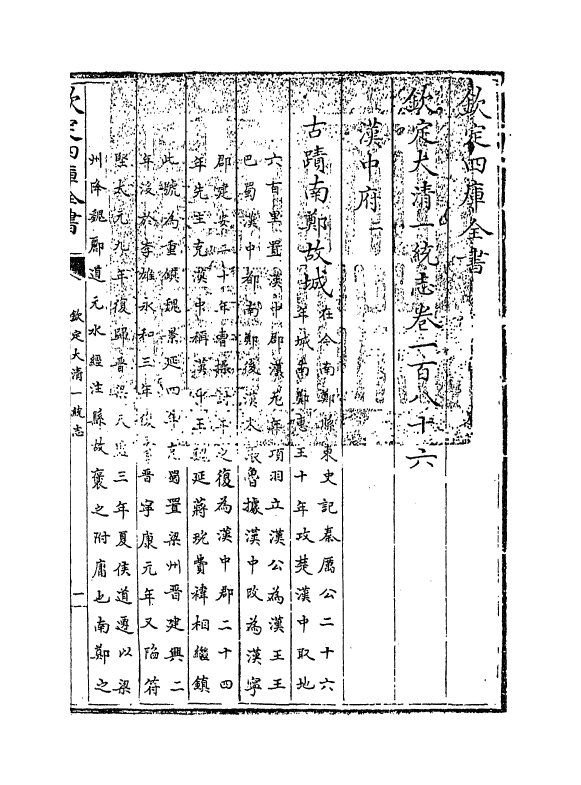 欽定四庫全書
欽定大清一統志卷一百八十六
漢中府二
古蹟南鄭故城在今南鄭縣東史記秦厲公二十六
年城南鄭惠王十年攻楚漢中取地
六百里置漢中郡漢元年項羽立漢公為漢王王
巴蜀漢中都南鄭後漢末張魯據漢中改為漢寧
郡建安二十年曹操討平之復為漢中郡二十四
年先主克漢中稱漢中王 延蔣琬費禕相繼鎮
此號為重鎮魏景延四年 蜀置梁州晉建興二
年没於李雄永和三年復 晉寧康元年又陷符
堅太元九年復歸晉梁天監三年夏侯道遷以梁
州降魏酈道元水經注縣故襃之附庸也南鄭之
欽定四庫全書
欽定大清一統志
一